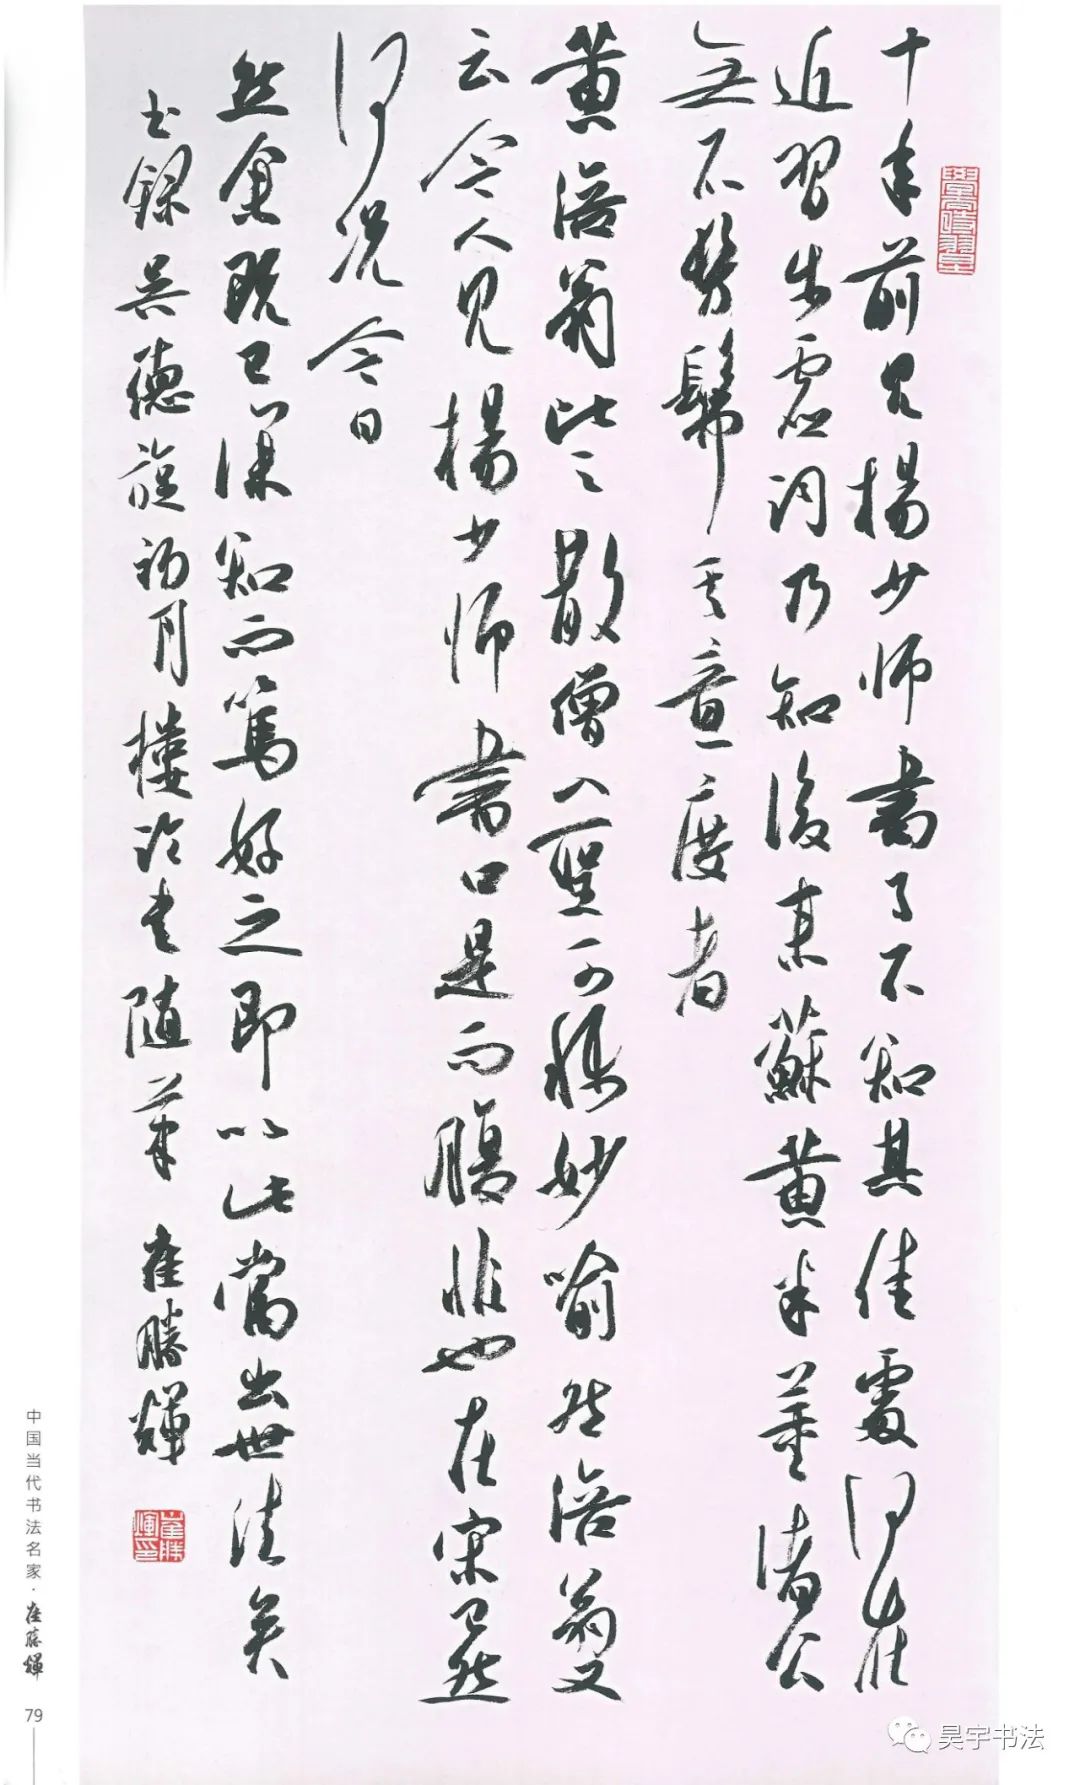 十年前見楊少師書了不知其佳處何在
近習步虛詞乃知後來蘇黃米董諸公
無不髣髴其意度者
黃涪翁比之散僧入聖可稱妙喻然涪翁又
云今人見楊少師書口是而腹非也在宋已然
何況今日
然余既已深知而篤好之即以此當出世法矣
書錄吳德旋初月樓論書隨筆 崔勝輝
崔勝輝印
中国当代书法名家·崔勝輝
79
昊宇书法